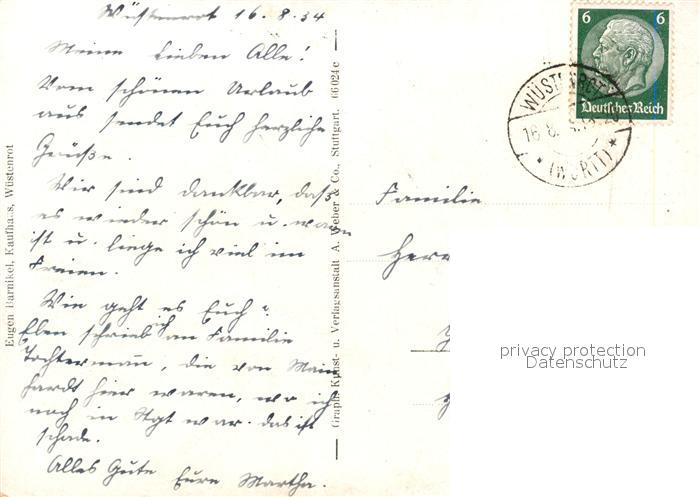 Wüstenrot 16.8.34
Meine Lieben Alle!
Vom schönen Urlaub
aus sendet Euch herzliche
Grüße.
Wir sind dankbar, daß
es wieder schön u. warm
ist u. liege ich viel im
Freien.
Wie geht es Euch?
Eben schrieb ich an Familie
Tochtermann, die von Main
hardt hier waren, wo ich
noch in Stgt war. das ist
schade.
Alles Gute
Eure Martha.
Eugen Barnikel, Kaufhaus, Wüstenrot
Graph. Kunst- u. Verlagsanstalt A. Weber & Co., Stuttgart. 66024c
6 6
Deutsches Reich
WÜSTENROT
16.8.
(WÜRTT)
Familie
Herr
privacy protection
Datenschutz